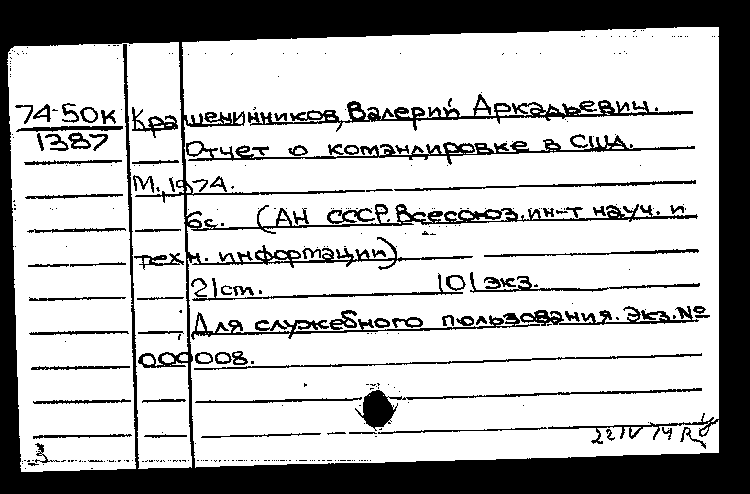 74-50к Крашенинников, Валерий Аркадьевич.
1387
Отчет о командировке в США.
М., 1974.
6с. (АН СССР. Всесоюз. ин-т науч. и
техн. информации).
21 cm. 101 экз.
Для служебного пользования. Экз. №
000008.
22 IV 74